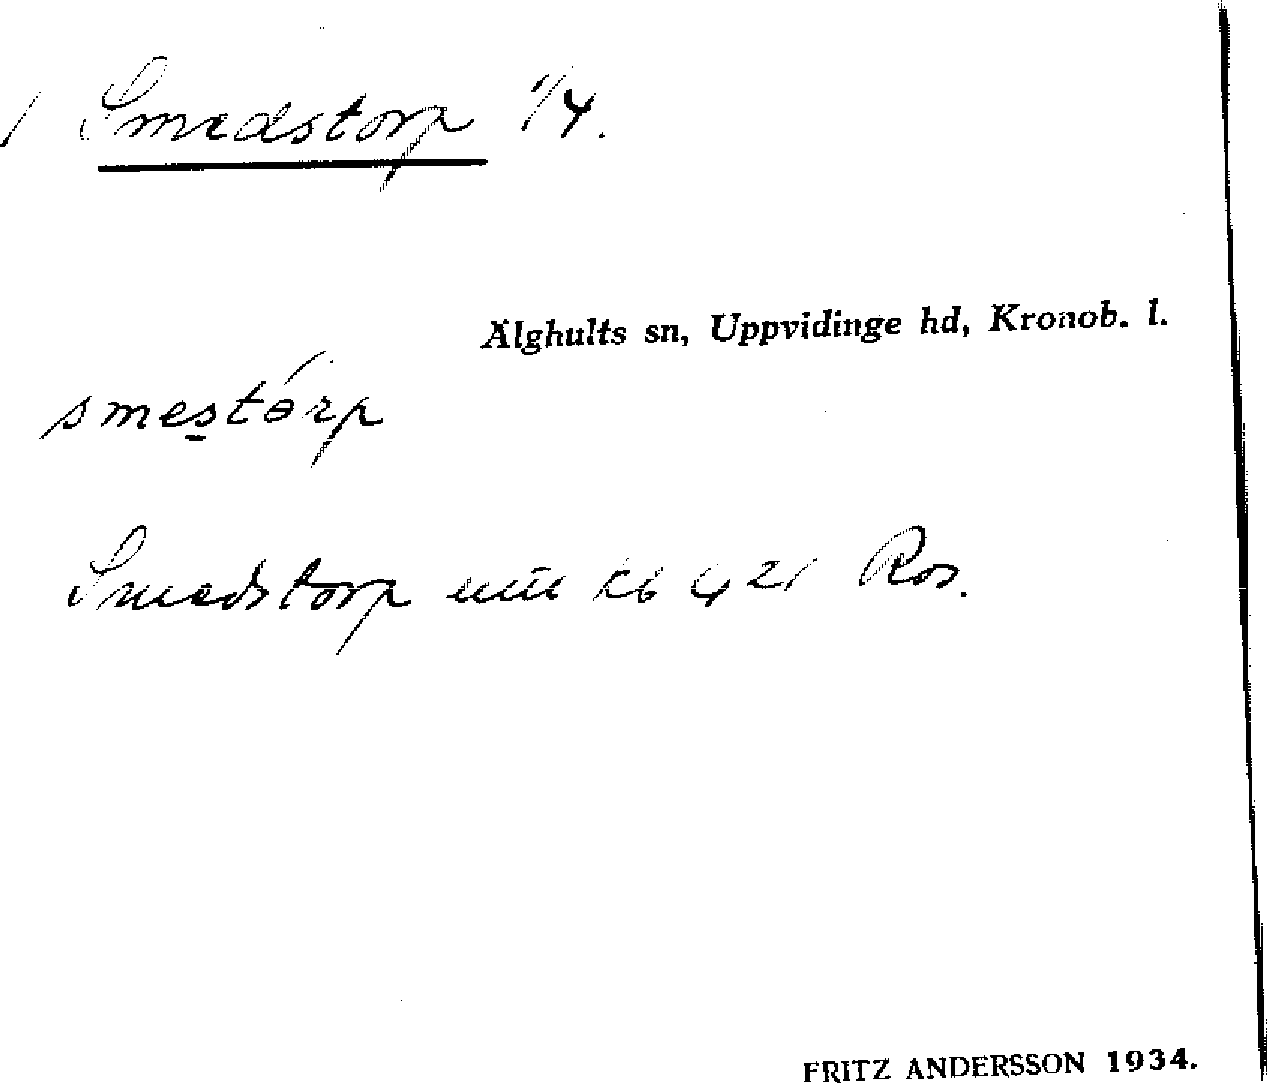 / Smedstorp 1/4.
Älghults sn, Uppvidinge hd, Kronob. l.
smestórp
Smedstorp kb 421 Ros.
FRITZ ANDERSSON 1934.